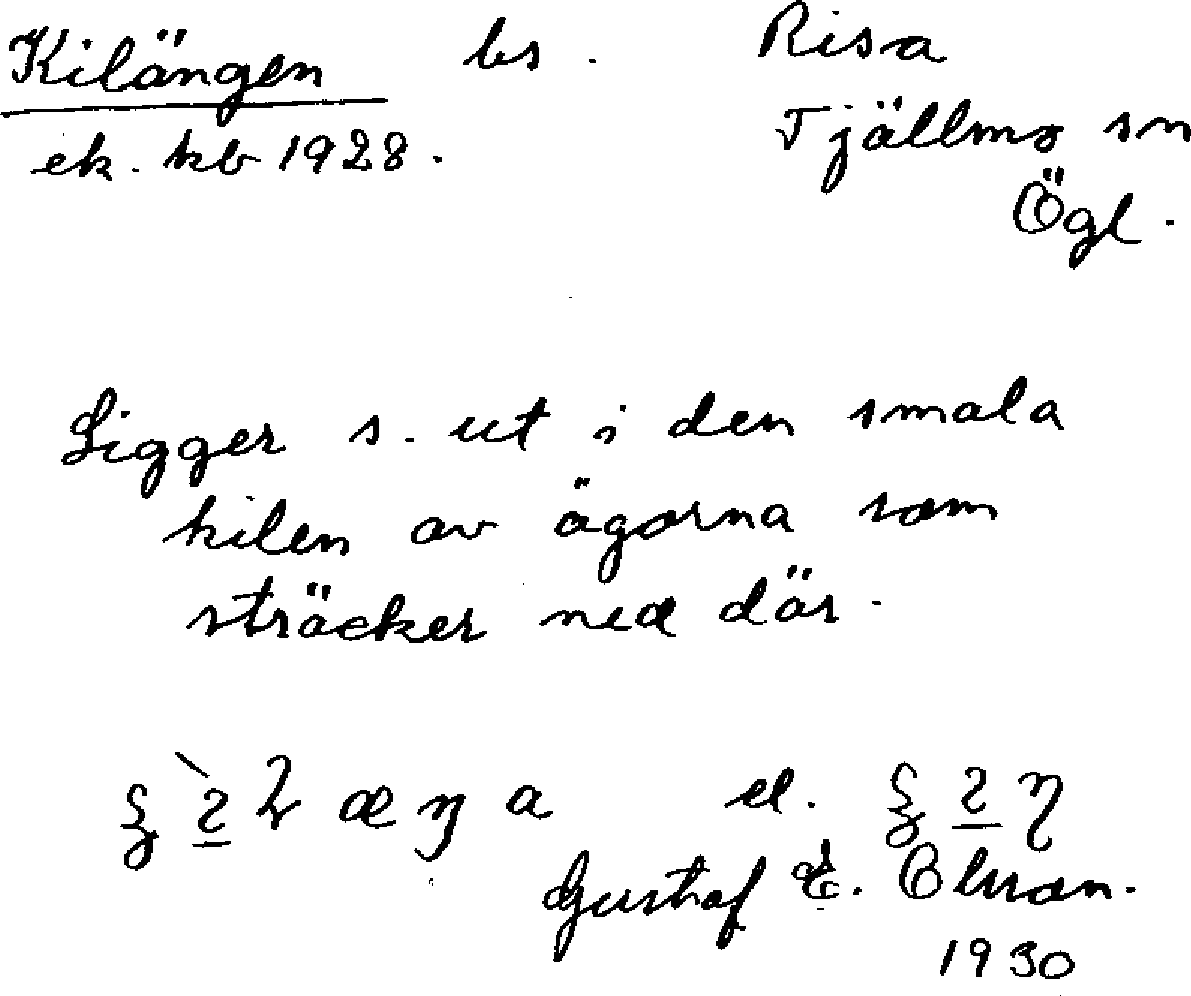 Kilängen bs. Risa
ek. kb 1928. Tjällmo sn
Ögl.
Ligger s. ut i den smala
kilen av ägorna som
sträcker ned där.
el.
Gustaf E. Olsson.
1930